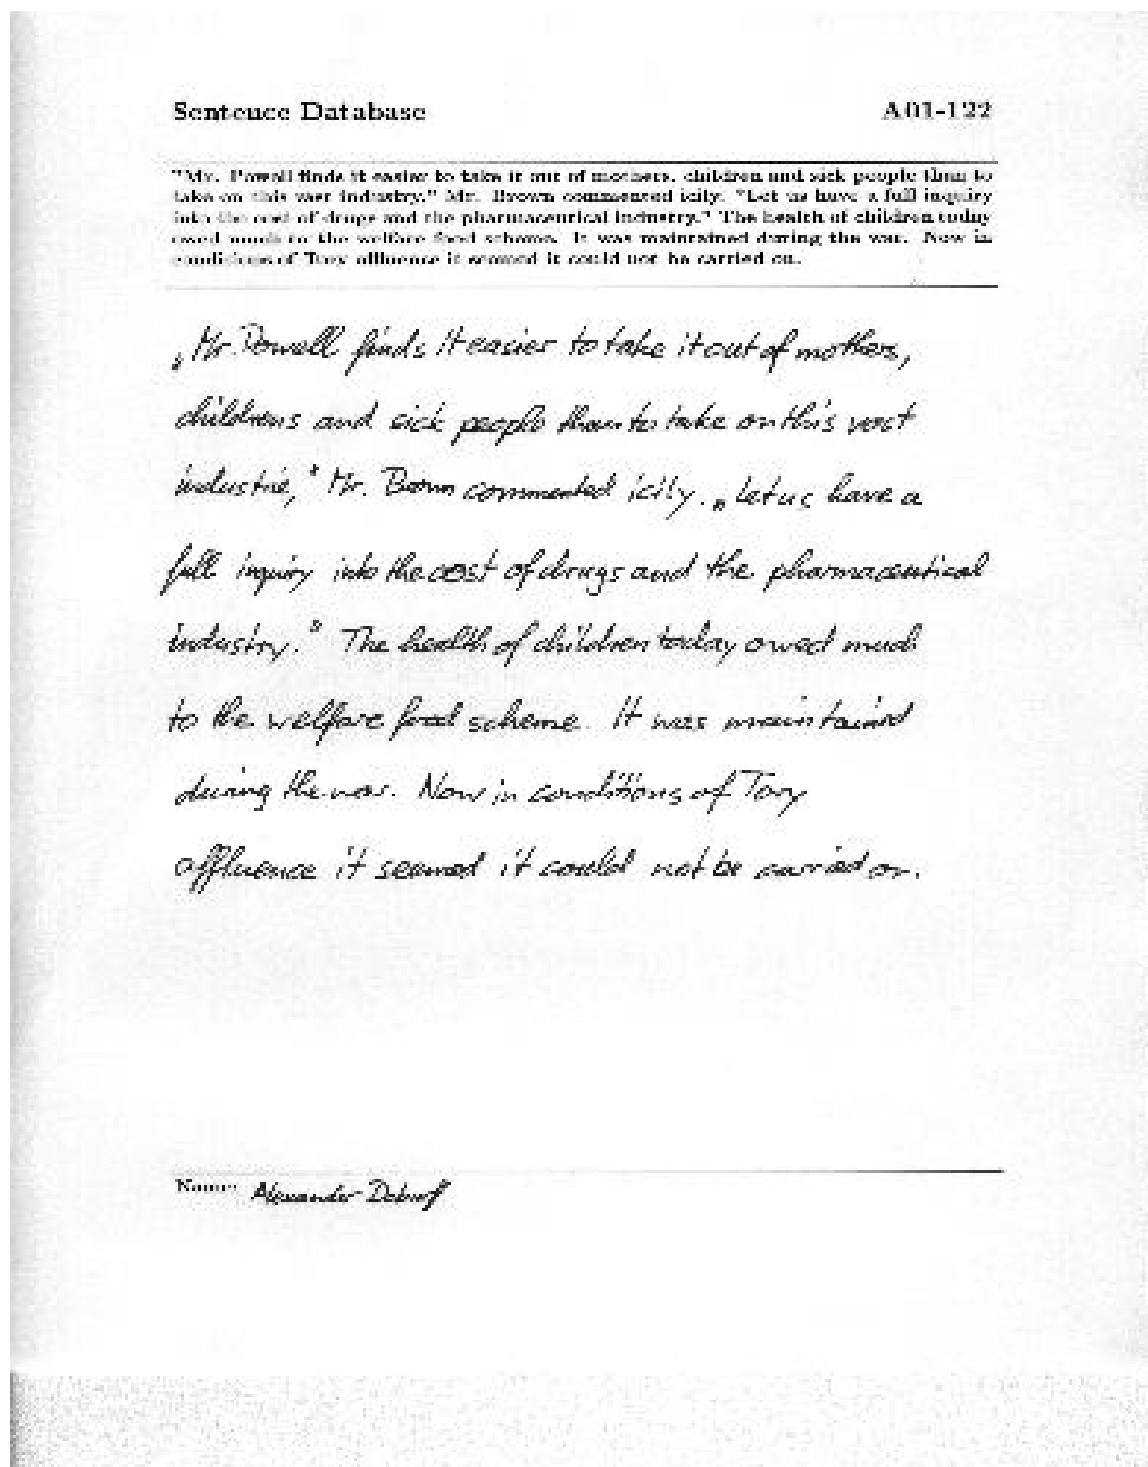 Sentence Database
A01-122
"Mr. Powell finds it easier to take it out of mothers, children and sick people than to
take on this vast industry." Mr. Brown commented icily. "Let us have a full inquiry
into the cost of drugs and the pharmaceutical industry." The health of children today
owed much to the welfare food scheme. It was maintained during the war. Now in
conditions of Tory affluence it seemed it could not be carried on.
„Mr. Powell finds it easier to take it out of mothers,
childrens and sick people than to take on this vast
industrie," Mr. Brown commented icily. „Let us have a
full inquiry into the cost of drugs and the pharmaceutical
industry." The health of children today owed much
to the welfare food scheme. It was maintained
during the war. Now in conditions of Tory
affluence it seemed it could not be carried on.
Name: Alexander